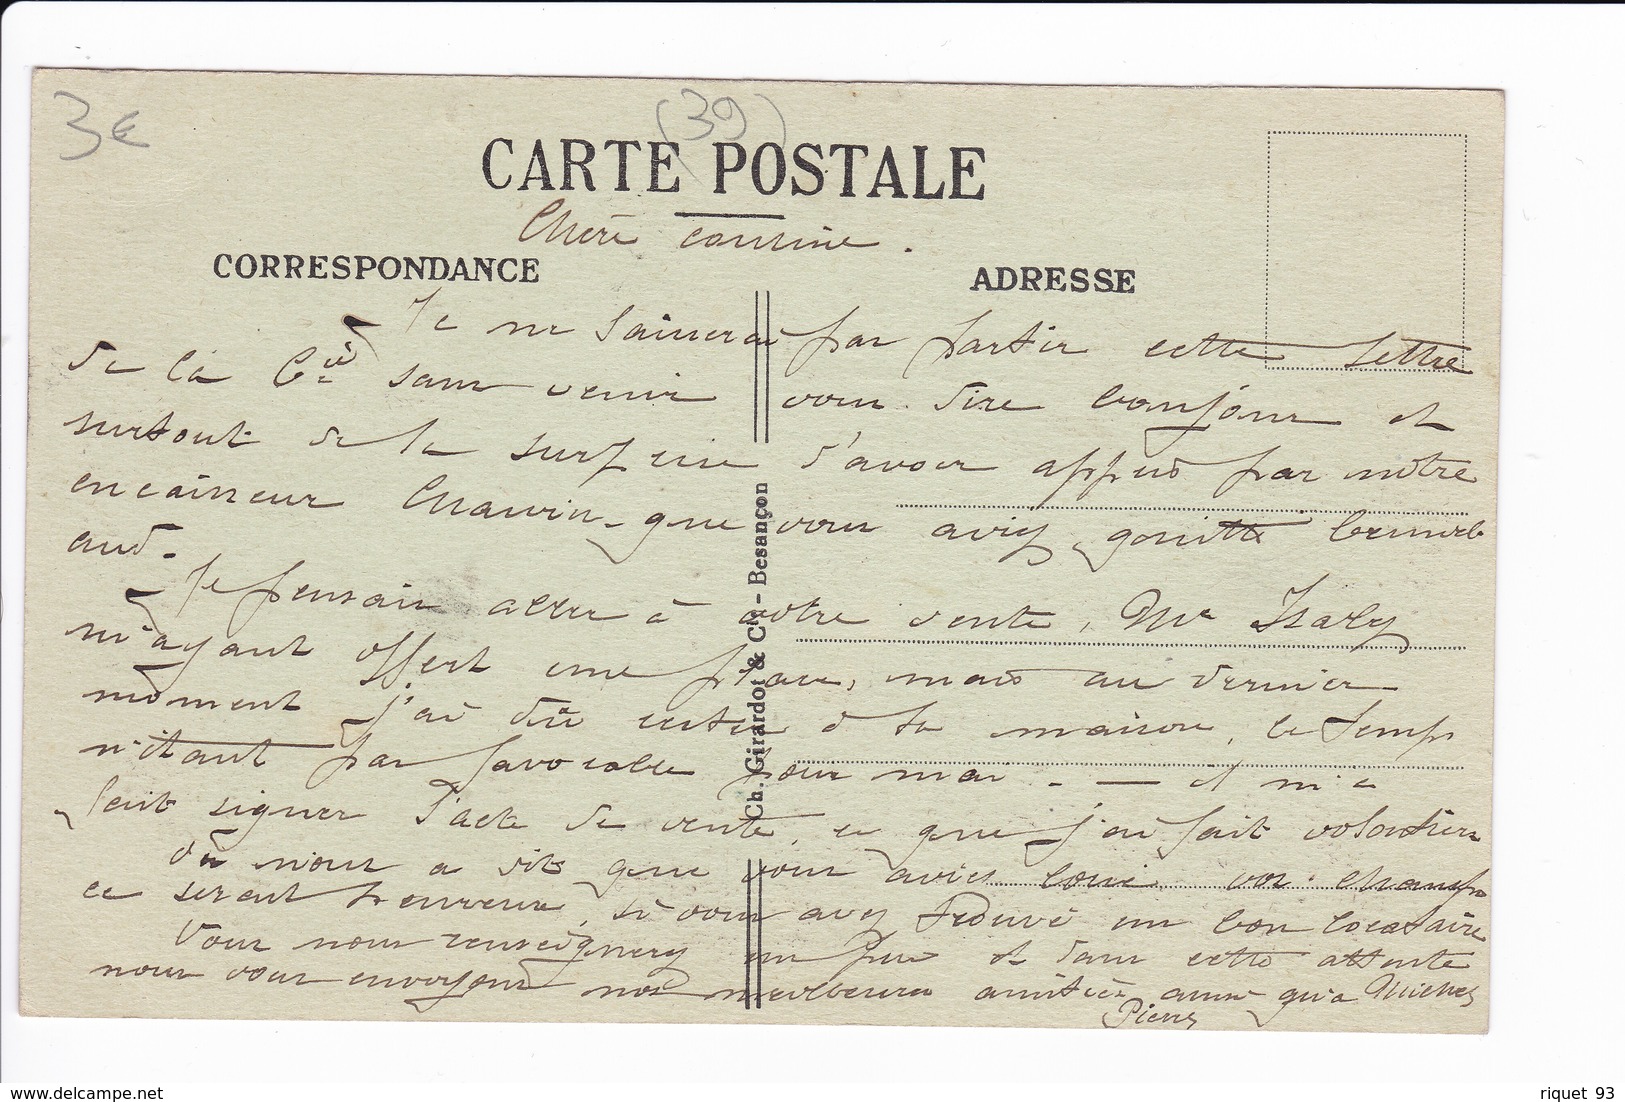 3€
(39)
CARTE POSTALE
Chère cousine.
CORRESPONDANCE
ADRESSE
Je ne laisserai pas partir cette lettre
de la Cie sans venir vous dire bonjour et
surtout de la surprise d'avoir appris par notre
encaisseur Chauvin que vous aviez quitté
aud.
Je pensais aller à votre vente, Mr
m'ayant offert une place, mais au dernier
moment j'ai dû rester à la maison, le temps
n'étant pas favorable pour moi. — il m'a
fait signer l'acte de vente, ce que j'ai fait volontiers
On nous a dit que vous aviez loué vos champs
ce serait heureux, si vous avez trouvé un bon locataire
Vous nous renseignerez un peu et dans cette attente
nous vous envoyons nos meilleures amitiés ainsi qu'à
Pierre
Ch. Girardot & Cie - Besançon
riquet 93